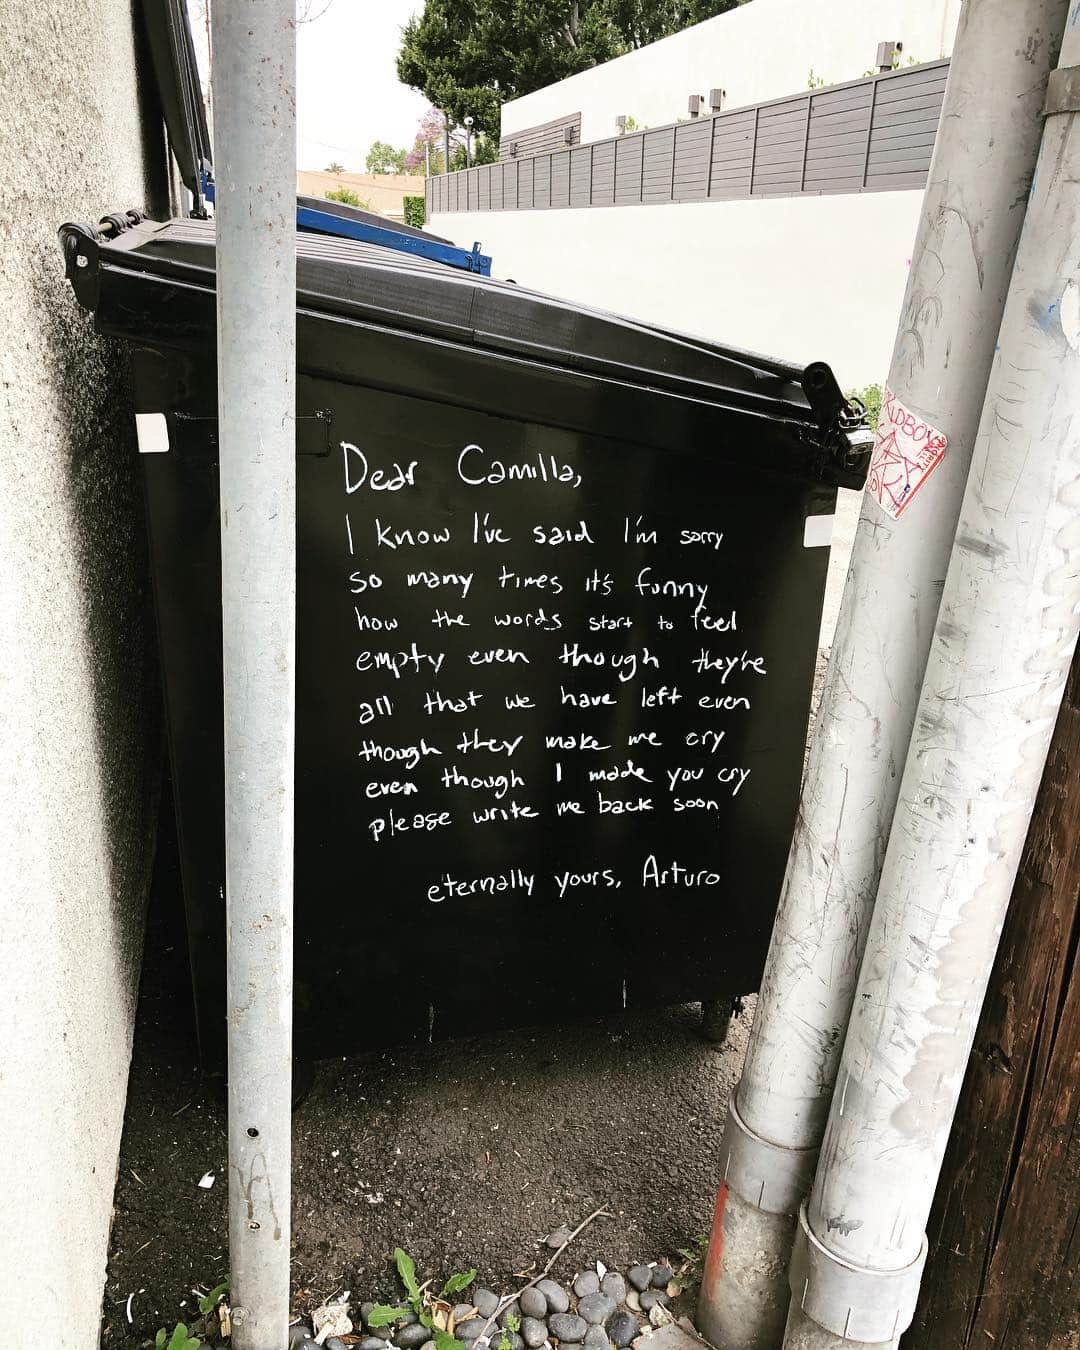 Dear Camilla,
I know I've said I'm sorry
so many times it's funny
how the words start to feel
empty even though they're
all that we have left even
though they make me cry
even though I made you cry
please write me back soon
eternally yours, Arturo